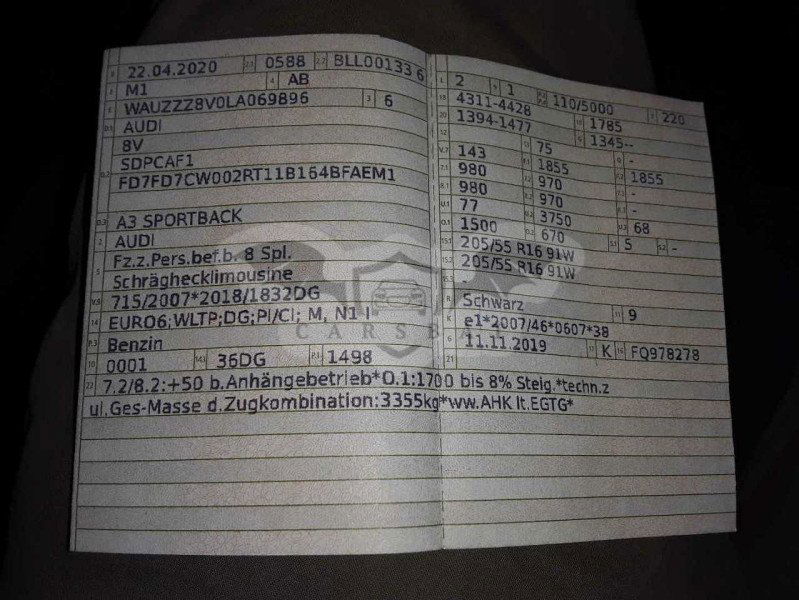 22.04.2020 0588 BLL00133 6
M1 AB
WAUZZZ8V0LA069896 6
AUDI
8V
SDPCAF1
FD7FD7CW002RT11B164BFAEM1
A3 SPORTBACK
AUDI
Fz.z.Pers.bef.b. 8 Spl.
Schräghecklimousine
715/2007*2018/1832DG
EURO6;WLTP;DG;PI/CI; M, N1 I
Benzin
0001 36DG 1498
2 1 110/5000 220
4311-4428 1785
1394-1477 1345--
75
143 1855 -
980 970 1855
980 970 -
77 3750 -
1500 670 68
205/55 R16 91W 5 -
205/55 R16 91W
-
Schwarz 9
e1*2007/46*0607*38
11.11.2019 K FQ978278
7.2/8.2:+50 b.Anhängebetrieb*O.1:1700 bis 8% Steig.*techn.z
ul.Ges-Masse d.Zugkombination:3355kg*ww.AHK lt.EGTG*
CARSB